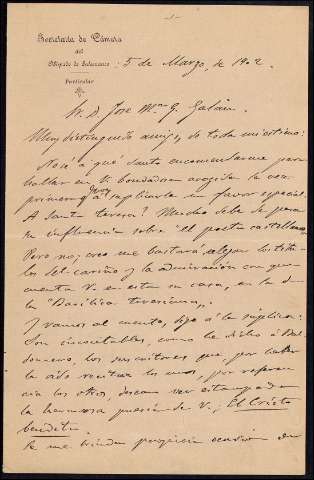 -1-
Secretaría de Cámara
del
Obispado de Salamanca
Particular
5 de Marzo, de 1902.
Sr. D. Jose Mª G. Galán.
Muy distinguido amigo, de toda mi estima:
No sé à qué Santo encomendarme para
hallar en su bondadosa acogida la vez
primera q. voy à suplicarle un favor especial.
A Santa teresa? Mucho debe de pesar
su influencia sobre "El poeta castellano."
Pero no; creo me bastará alegar los títu-
los del cariño y la admiración con que
cuenta V. en esta su casa, en la de
la "Basílica teresiana".
Y vamos al cuento, digo à la suplica:
Son incontables, como he dicho à Bal-
domero, los suscritores que, por haber
la oido recitar los unos, por referen
cia los otros, desean ver estampada
la hermosa poesía de V.; El Cristo
bendito.
Se me brinda propicia ocasión de